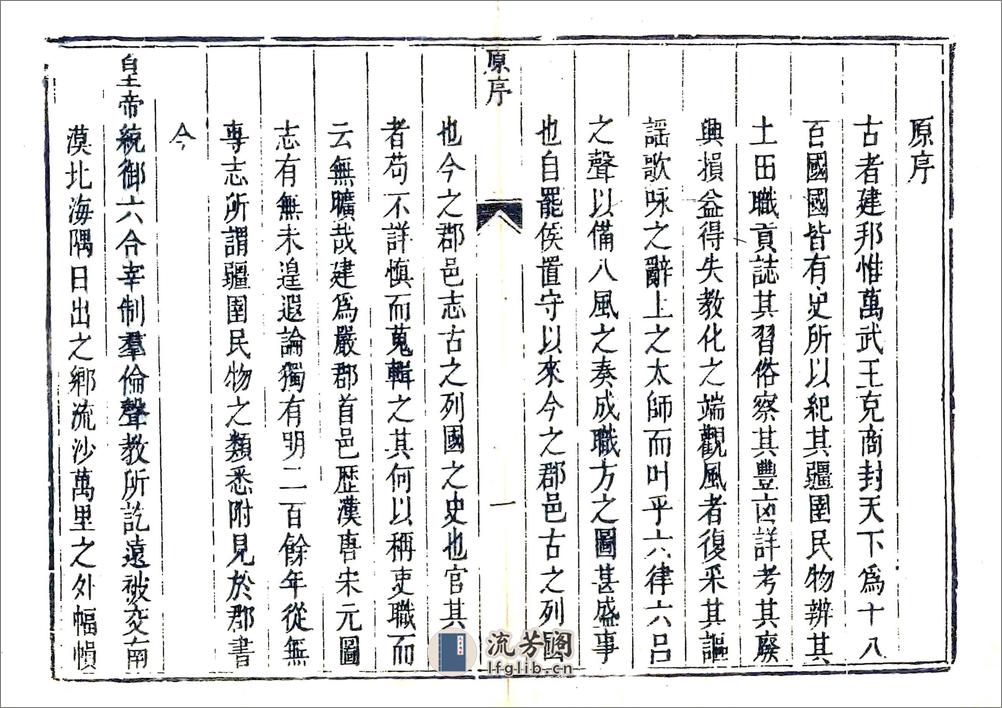 原序
古者建邦惟萬武王克商封天下爲十八
百國國皆有史所以紀其疆圉民物辨其
土田職貢誌其習俗察其豐凶詳考其廢
興損益得失教化之端觀風者復采其謳
謠歌咏之辭上之太師而叶乎六律六呂
之聲以備八風之奏成職方之圖甚盛事
也自罷侯置守以來今之郡邑古之列國
原序
一
也今之郡邑志古之列國之史也官其
者苟不詳慎而蒐輯之其何以稱吏職而
云無曠哉建爲嚴郡首邑歷漢唐宋元圖
志有無未遑遐論獨有明二百餘年從無
專志所謂疆圉民物之類悉附見於郡書
今
皇帝統御六合宰制羣倫聲教所訖遠被交南
漠北海隅日出之鄉流沙萬里之外幅幀
流芳阁
lfglib.cn